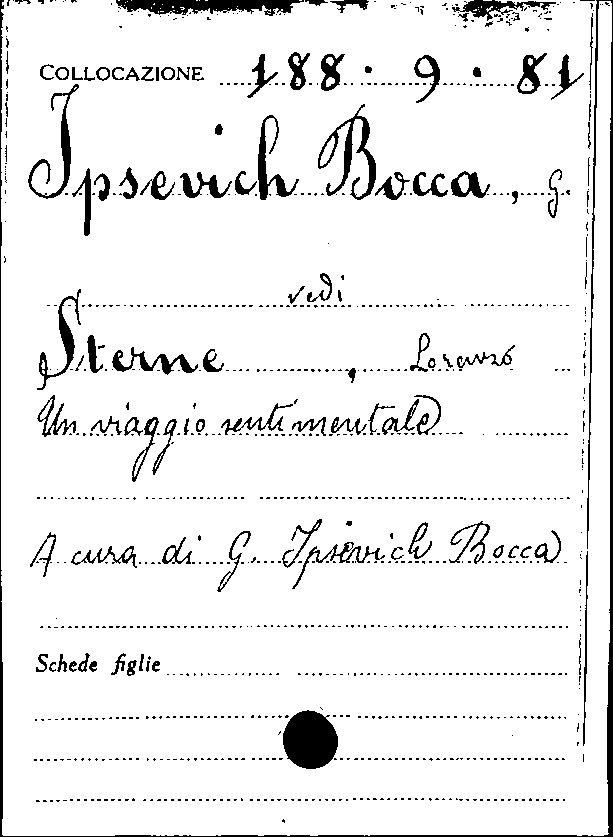 COLLOCAZIONE 188 · 9 · 81
Ipsevich Bocca, G.
vedi
Sterne, Lorenzo
Un viaggio sentimentale
A cura di G. Ipsevich Bocca
Schede figlie